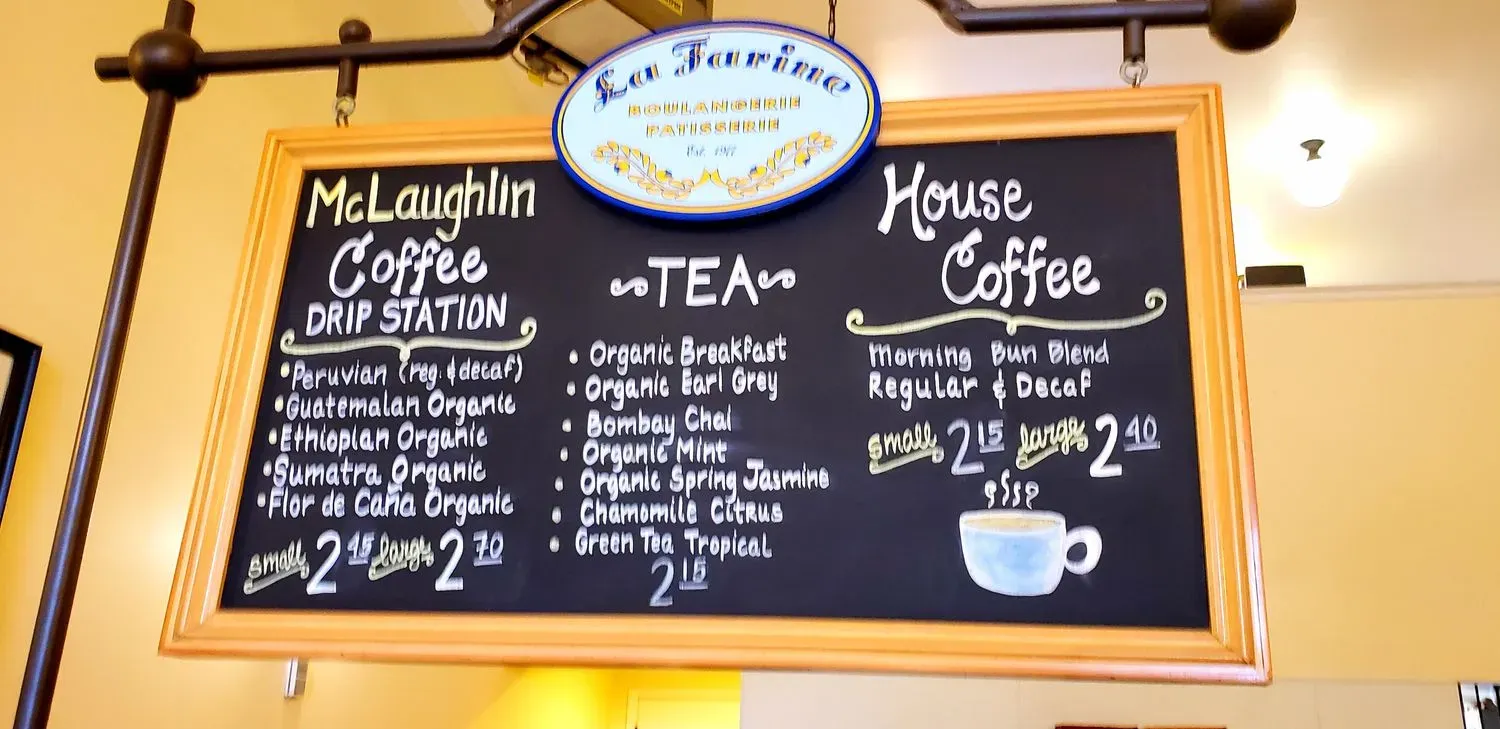 La Farine
BOULANGERIE
PATISSERIE
Est. 1977
McLaughlin
Coffee
DRIP STATION
• Peruvian (reg. & decaf)
• Guatemalan Organic
• Ethiopian Organic
• Sumatra Organic
• Flor de Caña Organic
small 2 45 large 2 70
~TEA~
• Organic Breakfast
• Organic Earl Grey
• Bombay Chai
• Organic Mint
• Organic Spring Jasmine
• Chamomile Citrus
• Green Tea Tropical
2 15
House
Coffee
Morning Bun Blend
Regular & Decaf
small 2 15 large 2 40